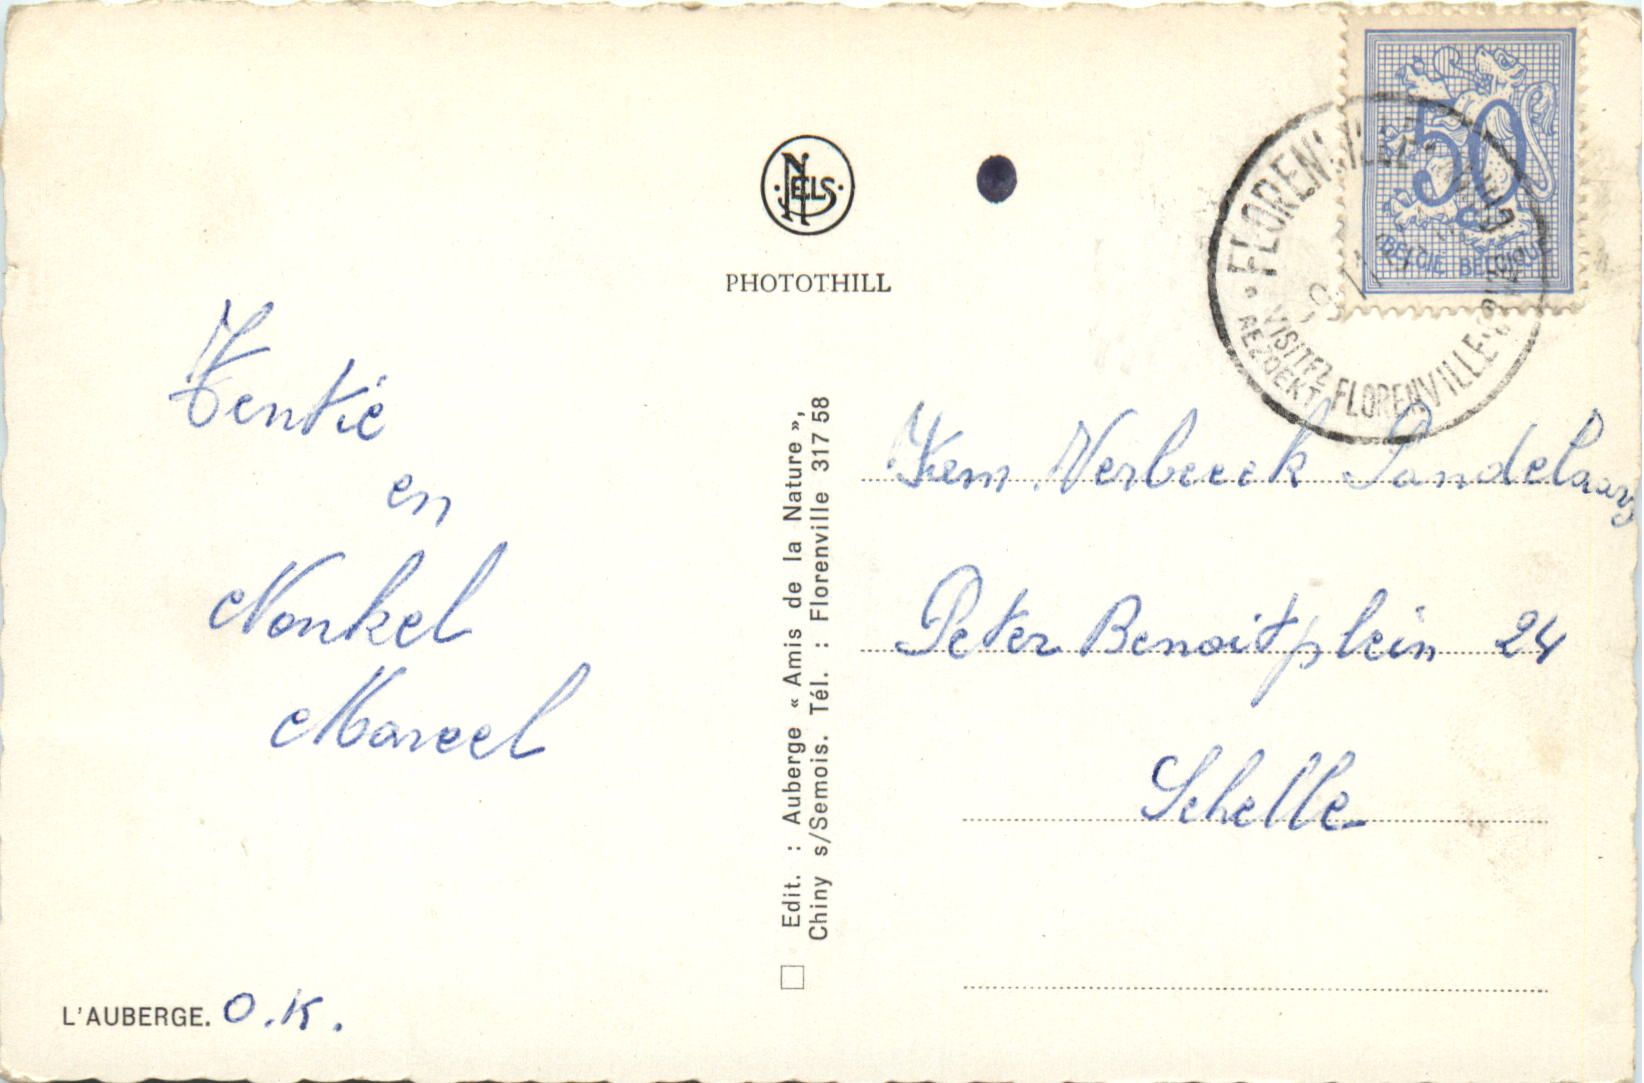 NELS
PHOTOTHILL
50
BELGIË BELGIQUE
FLORENVILLE
VISITEZ FLORENVILLE
BEZOEKT
Tentie
en
Nonkel
Marcel
Fam. Verbeeck
Peter Benoitplein 24
Schelle
Edit. : Auberge « Amis de la Nature »,
Chiny s/Semois. Tél. : Florenville 317 58
L'AUBERGE. O.K.